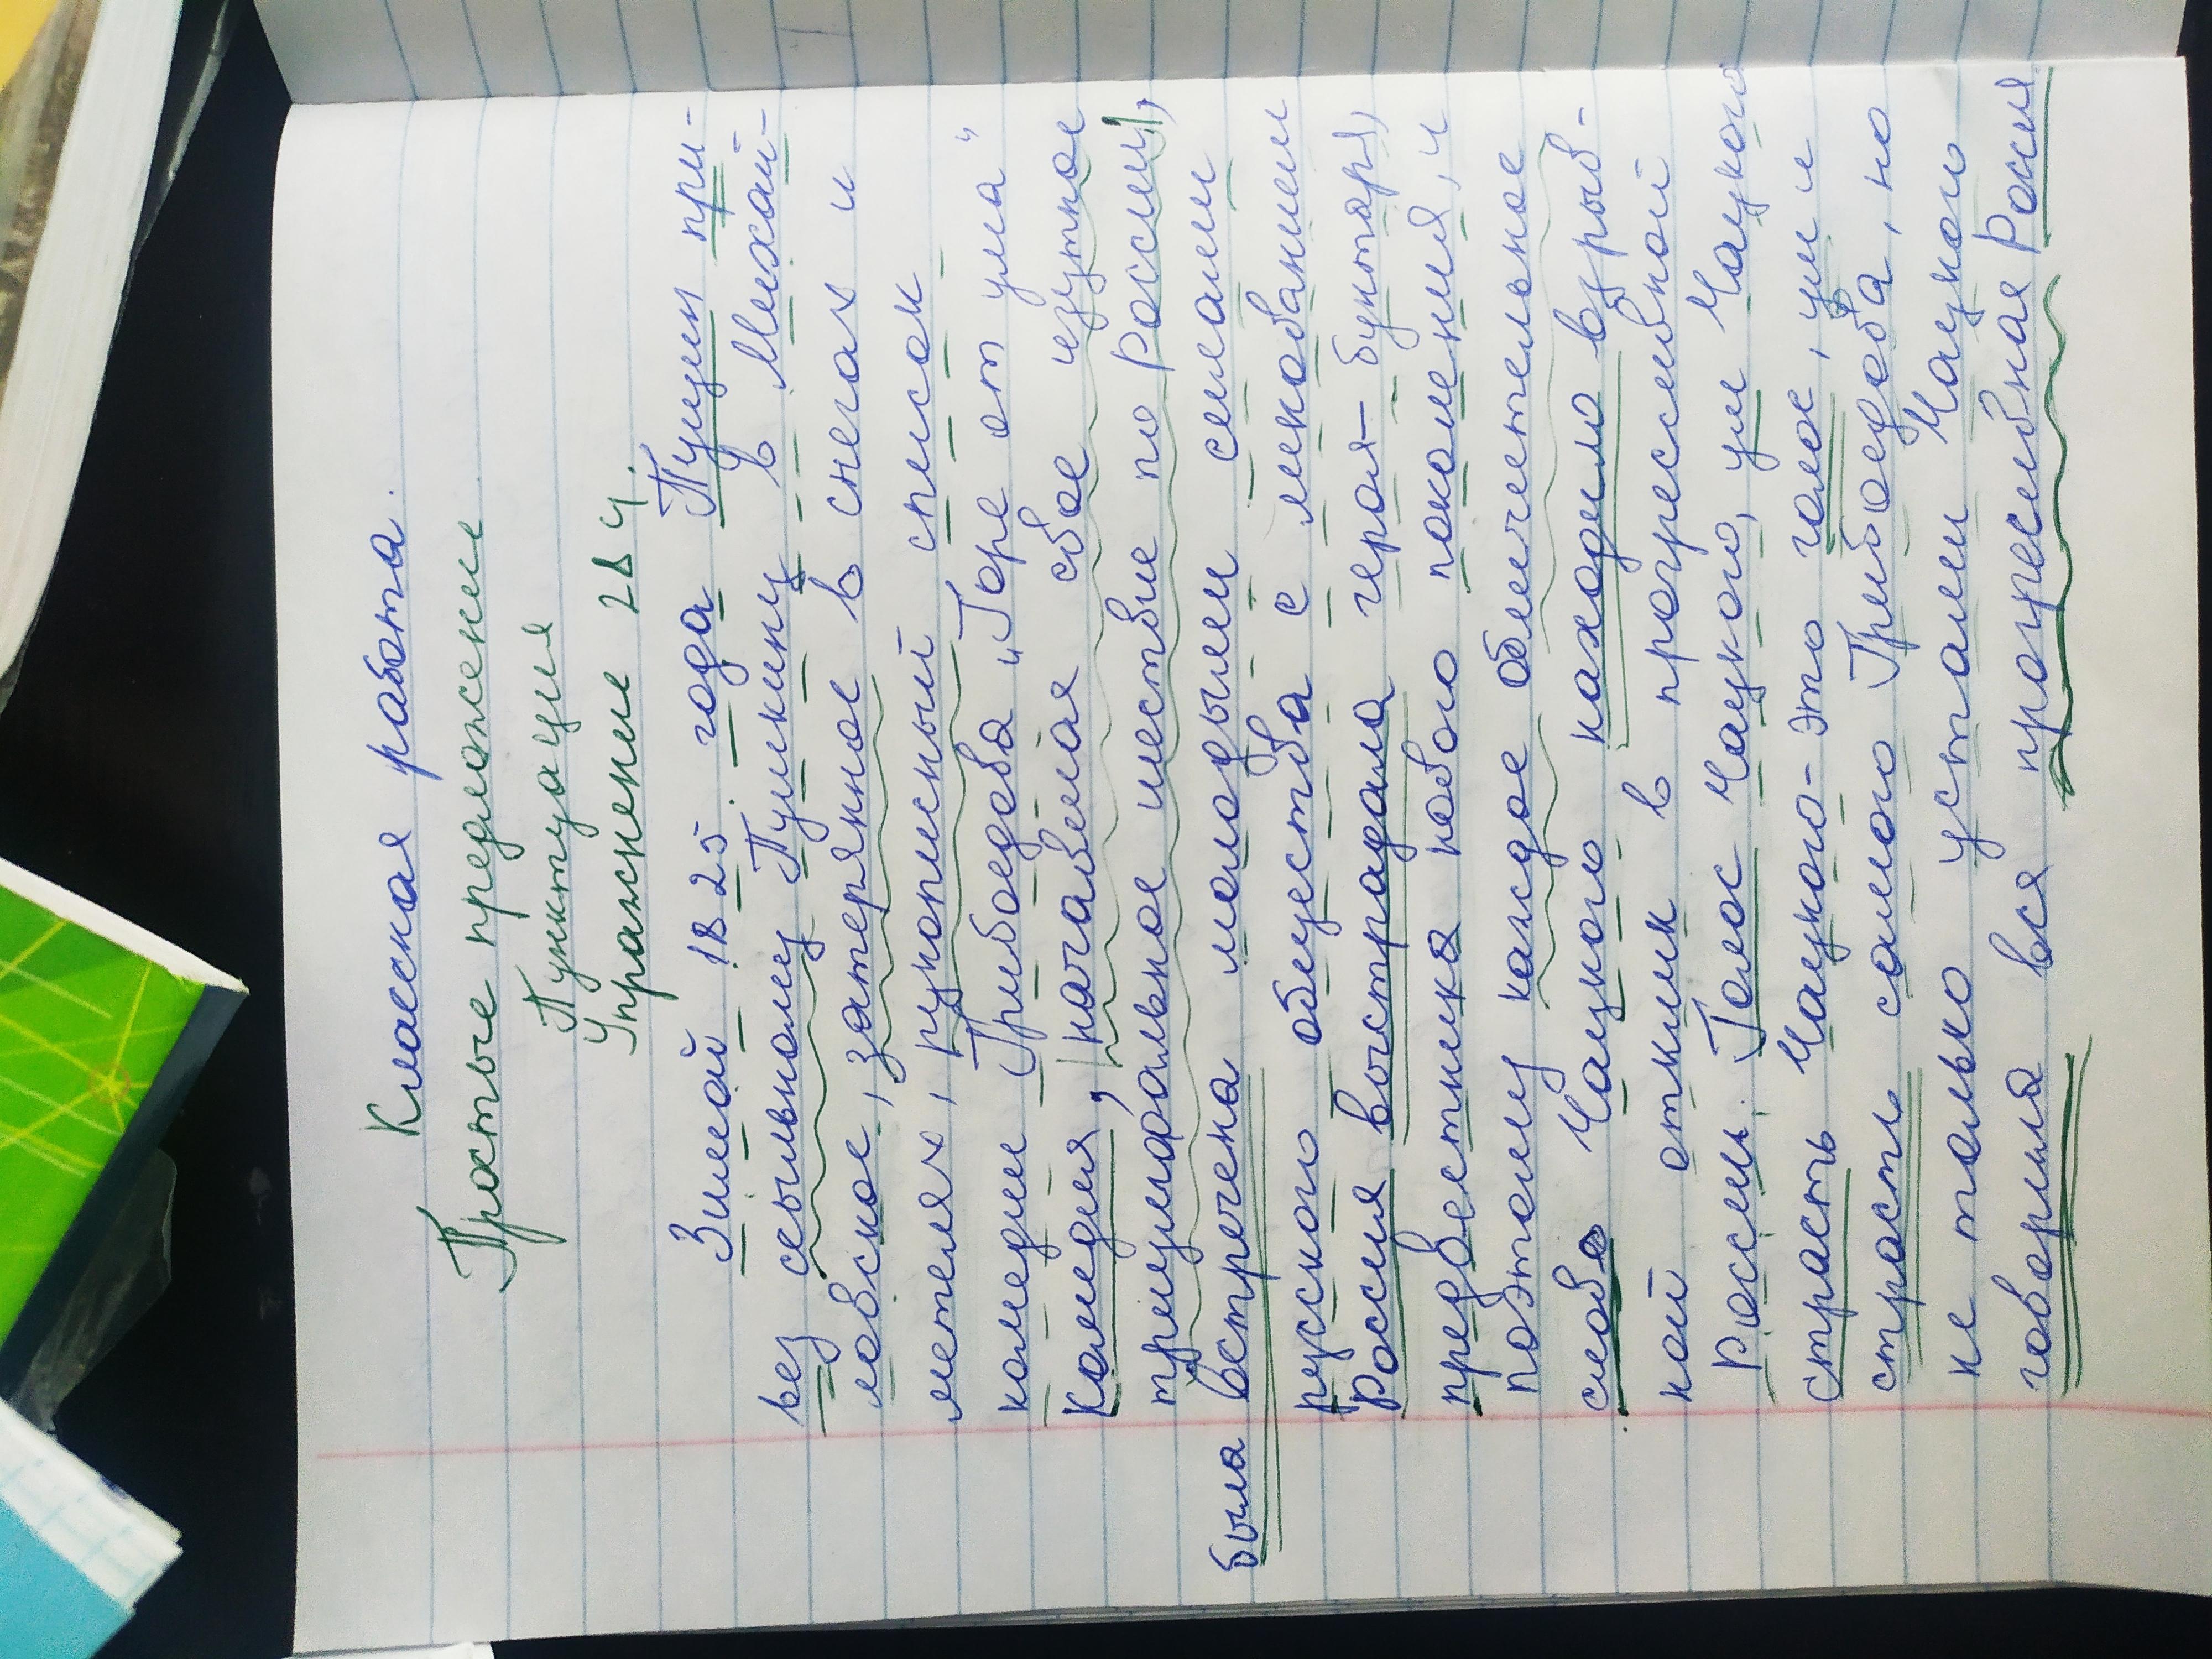 Классная работа.
Простые предложение
Пунктуация
Упражнение 284.
Зимой 1825 года Пущин при-
вез ссыльному Пушкину в Михай-
ловское, затерянное в снегах и
метелях, рукописный список
комедии Грибоедова „Горе от ума“
Комедия, начавшая свое изустное
триумфальное шествие по России,
была встречена молодыми силами
русского общества с ликованием
Россия выстрадала героя-бунтаря,
предвестника нового поколения, и
поэтому каждое обличительное
слово Чацкого находило взрыв-
ной отклик в прогрессивной
России. Голос Чацкого, ум Чацкого
страсть Чацкого-это голос, ум и
страсть самого Грибоедова, но
не только устами Чацкого
говорила вся прогресивная Россия.